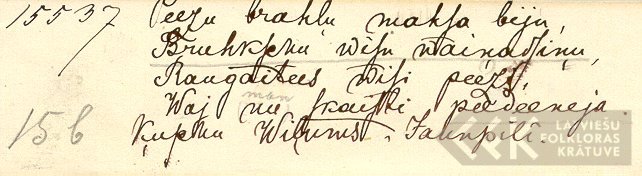 15537
Peezu brahlu mahsa biju,
Bruhkʃchu wisu wainadsinu,
Raugaitees wisi peezi,
man
Waj nu skaisti peedeeneja.
15b
Wilums Jaunpilī.
LATVIEŠU
FOLKLORAS
KRĀTUVE